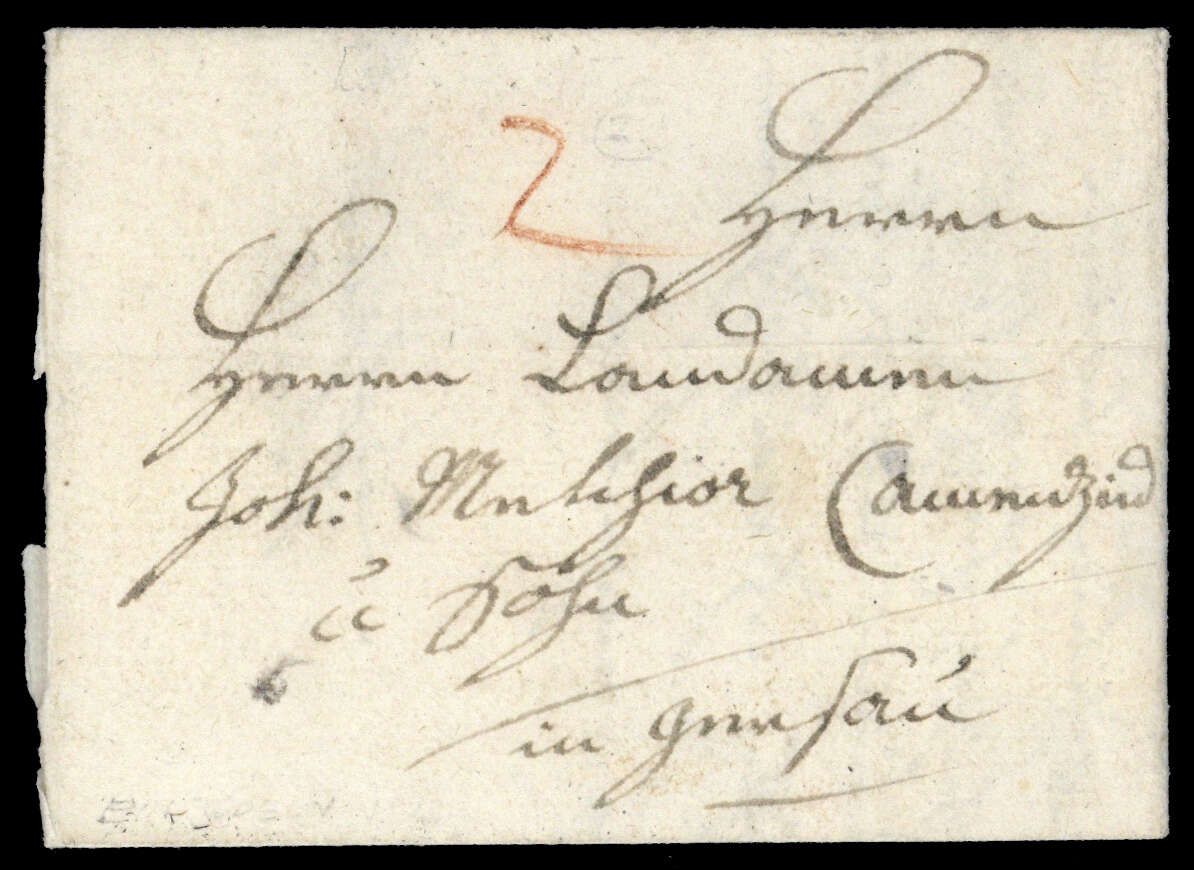 2
Herrn
Herrn Landamen
Joh: Melchior Camenzind
u Sohn
in Gersau